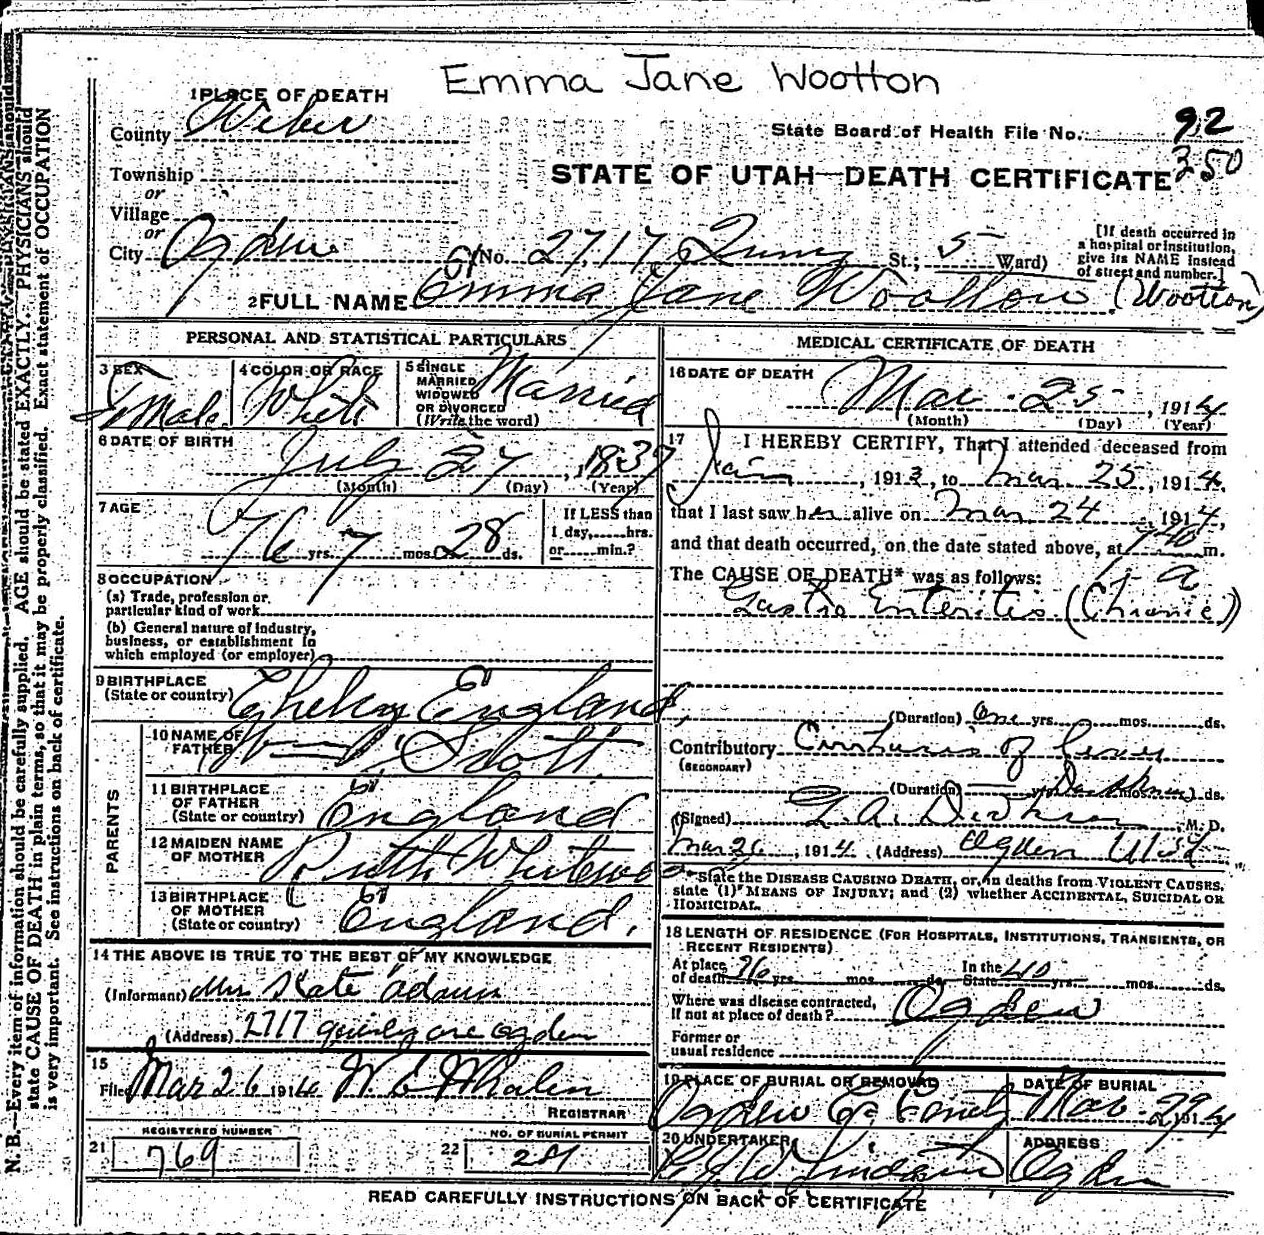 Emma Jane Wootton
1 PLACE OF DEATH
County Weber
State Board of Health File No. 92
350
Township
or
STATE OF UTAH—DEATH CERTIFICATE
Village
or
City Ogden No. 2717 St.; 5 Ward)
[If death occurred in a hospital or institution, give its NAME instead of street and number.]
2 FULL NAME Emma Jane Wootton (Wootton)
PERSONAL AND STATISTICAL PARTICULARS
3 SEX
Female
4 COLOR OR RACE
White
5 SINGLE MARRIED WIDOWED OR DIVORCED (Write the word)
Married
6 DATE OF BIRTH
July 27, 1837
(Month) (Day) (Year)
7 AGE
76 yrs. 7 mos. 28 ds.
If LESS than 1 day, hrs. or min.?
8 OCCUPATION
(a) Trade, profession or particular kind of work
(b) General nature of industry, business, or establishment in which employed (or employer)
9 BIRTHPLACE
(State or country) England
10 NAME OF FATHER
11 BIRTHPLACE OF FATHER (State or country) England
12 MAIDEN NAME OF MOTHER Ruth
13 BIRTHPLACE OF MOTHER (State or country) England.
PARENTS
14 THE ABOVE IS TRUE TO THE BEST OF MY KNOWLEDGE
(Informant) Mrs Kate Adams
(Address) 2717 quincy ave ogden
15
Filed Mar 26 1914 W E Whalen
REGISTRAR
21 REGISTERED NUMBER
769
22 NO. OF BURIAL PERMIT
MEDICAL CERTIFICATE OF DEATH
16 DATE OF DEATH
Mar. 25, 1914
(Month) (Day) (Year)
17 I HEREBY CERTIFY, That I attended deceased from
, 1913, to Mar 25, 1914,
that I last saw her alive on Mar 24 1914,
and that death occurred, on the date stated above, at m.
The CAUSE OF DEATH* was as follows:
Gastro Enteritis (Chronic)
(Duration) One yrs. mos. ds.
Contributory of
(SECONDARY)
(Duration) yrs. mos. ds.
(Signed) M. D.
Mar 26, 1914 (Address) Ogden Utah
*State the DISEASE CAUSING DEATH, or, in deaths from VIOLENT CAUSES, state (1) MEANS OF INJURY; and (2) whether ACCIDENTAL, SUICIDAL OR HOMICIDAL.
18 LENGTH OF RESIDENCE (FOR HOSPITALS, INSTITUTIONS, TRANSIENTS, OR RECENT RESIDENTS)
At place of death yrs. mos. ds. In the State 40 yrs. mos. ds.
Where was disease contracted, If not at place of death? Ogden
Former or usual residence
19 PLACE OF BURIAL OR REMOVAL
Ogden
DATE OF BURIAL
Mar. 29 1914
20 UNDERTAKER
ADDRESS
Ogden
READ CAREFULLY INSTRUCTIONS ON BACK OF CERTIFICATE
N. B.—Every item of information should be carefully supplied. AGE should be stated EXACTLY. PHYSICIANS should
state CAUSE OF DEATH in plain terms, so that it may be properly classified. Exact statement of OCCUPATION
is very important. See instructions on back of certificate.